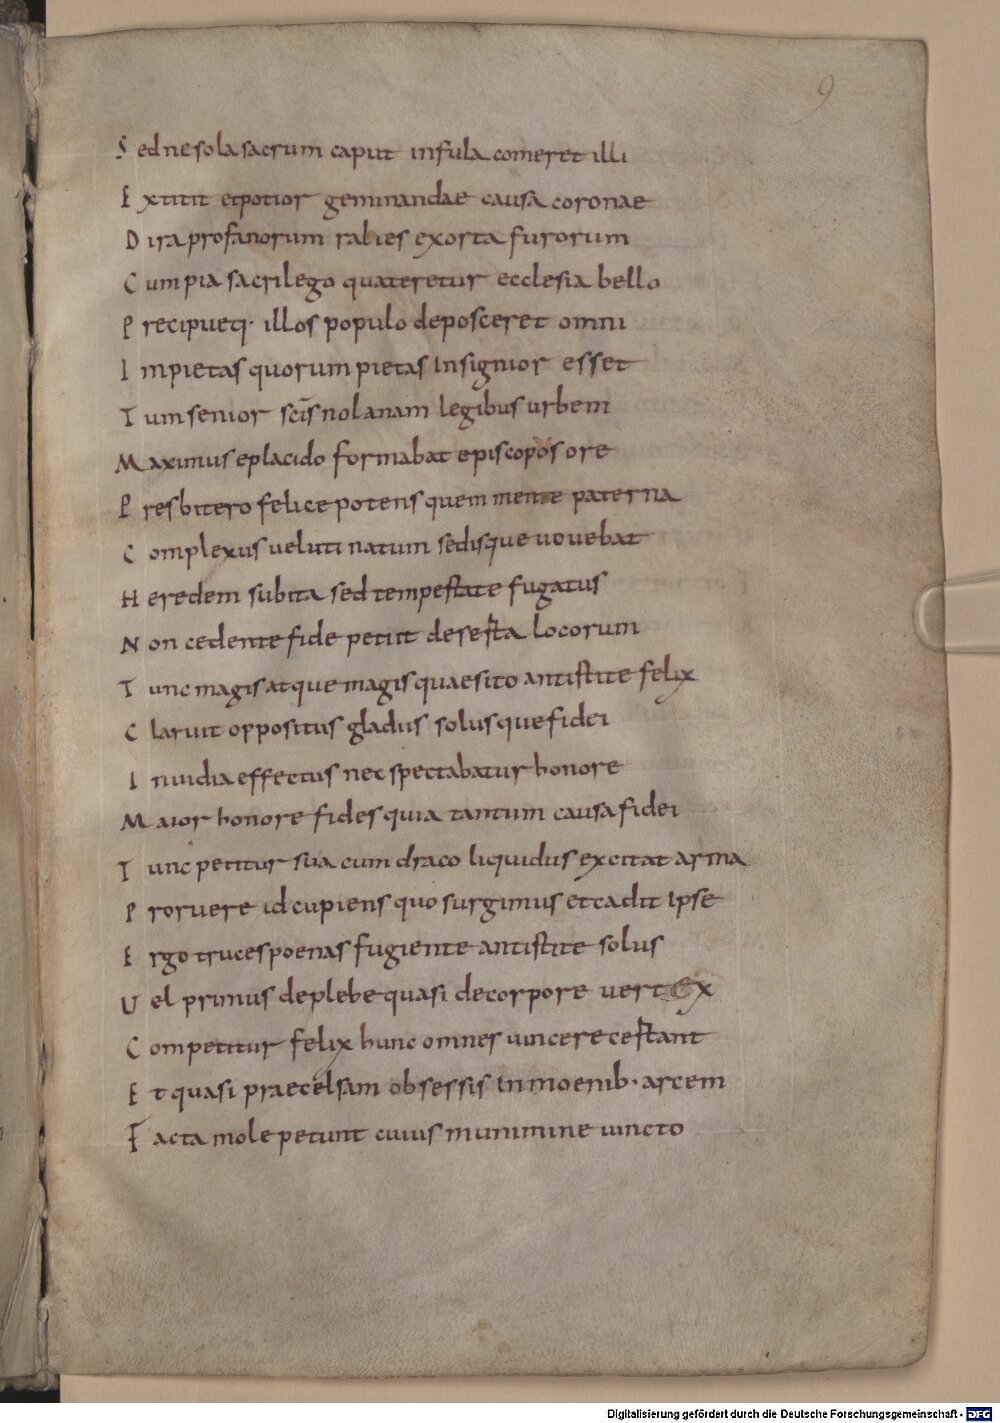 9
S ed ne sola sacrum caput infula comeret illi
E xtitit et potior geminandae causa coronae
D ira profanorum rabies exorta furorum
C um pia sacrilego quateretur ecclesia bello
P recipueq· illos populo deposceret omni
I mpietas quorum pietas insignior esset
T um senior scīs nolanam legibus urbem
M aximus e placido formabat episcopos ore
P resbitero felice potens quem mente paterna
C omplexus veluti natum sedisque vovebat
H eredem subita sed tempestate fugatus
N on cedente fide petiit deserta locorum
T unc magis atque magis quaesito antistite felix
C laruit oppositus gladiis solusque fidei
I nvidia effectus nec spectabatur honore
M aior honore fides quia tantum causa fidei
T unc petitur sua cum draco liquidus excitat arma
P roruere id cupiens quo surgimus et cadit ipse
E rgo truces poenas fugiente antistite solus
U el primus de plebe quasi de corpore vertex
C ompetitur felix hunc omnes vincere certant
E t quasi praecelsam obsessis in moenib· arcem
F acta mole petunt cuius munimine vincto
Digitalisierung gefördert durch die Deutsche Forschungsgemeinschaft - DFG